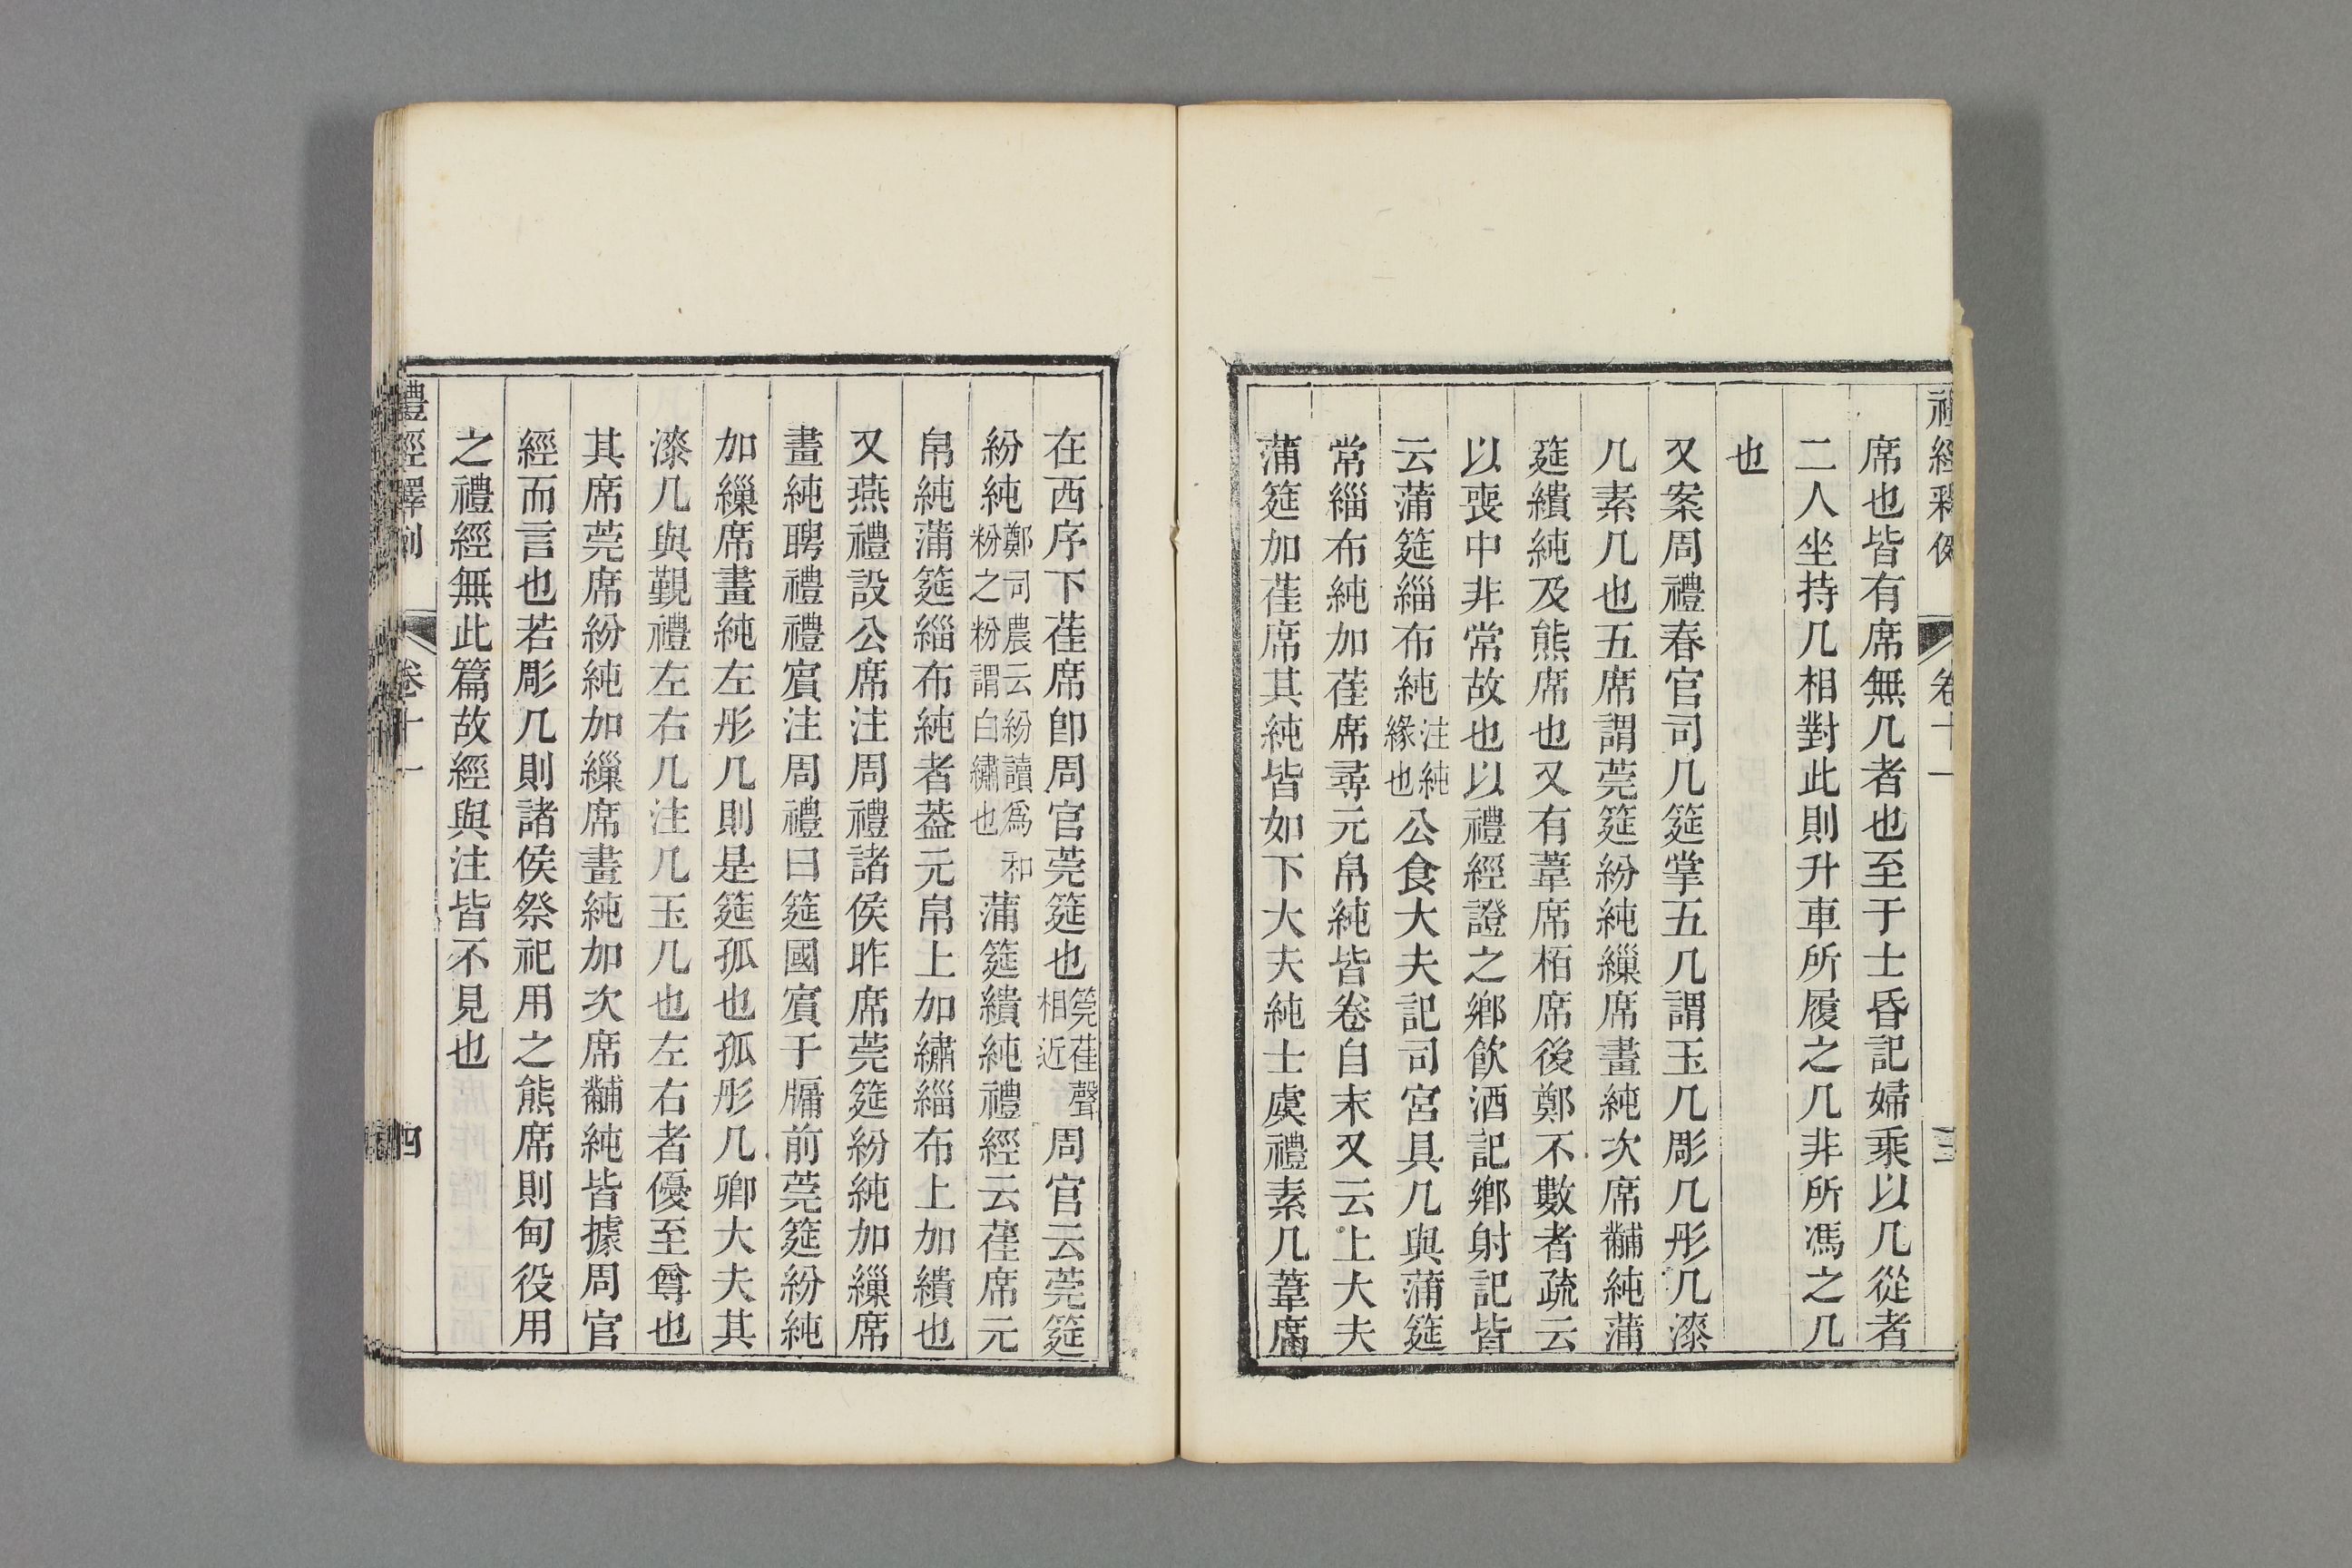 禮經釋例 卷十一 三
席也皆有席無几者也至于士昏記婦乘以几從者
二人坐持几相對此則升車所履之几非所馮之几
也
又案周禮春官司几筵掌五几謂玉几彫几彤几漆
几素几也五席謂莞筵紛純繅席畫純次席黼純蒲
筵繢純及熊席也又有葦席桮席後鄭不數者疏云
以喪中非常故也以禮經證之鄉飲酒記鄉射記皆
云蒲筵緇布純注純緣也公食大夫記司宮具几與蒲筵
常緇布純加萑席尋元帛純皆卷自末又云上大夫
蒲筵加萑席其純皆如下大夫純士虞禮素几葦席
在西序下萑席卽周官莞筵也筦萑聲相近周官云莞筵
紛純鄭司農云紛讀爲和粉之粉謂白繡也蒲筵繢純禮經云萑席元
帛純蒲筵緇布純者葢元帛上加繡緇布上加繢也
又燕禮設公席注周禮諸侯昨席莞筵紛純加繅席
畫純聘禮禮賓注周禮曰筵國賓于牖前莞筵紛純
加繅席畫純左彤几則是筵孤也孤彤几卿大夫其
漆几與覲禮左右几注几玉几也左右者優至尊也
其席莞席紛純加繅席畫純加次席黼純皆據周官
經而言也若彫几則諸侯祭祀用之熊席則甸役用
之禮經無此篇故經與注皆不見也
禮經釋例 卷十一 四